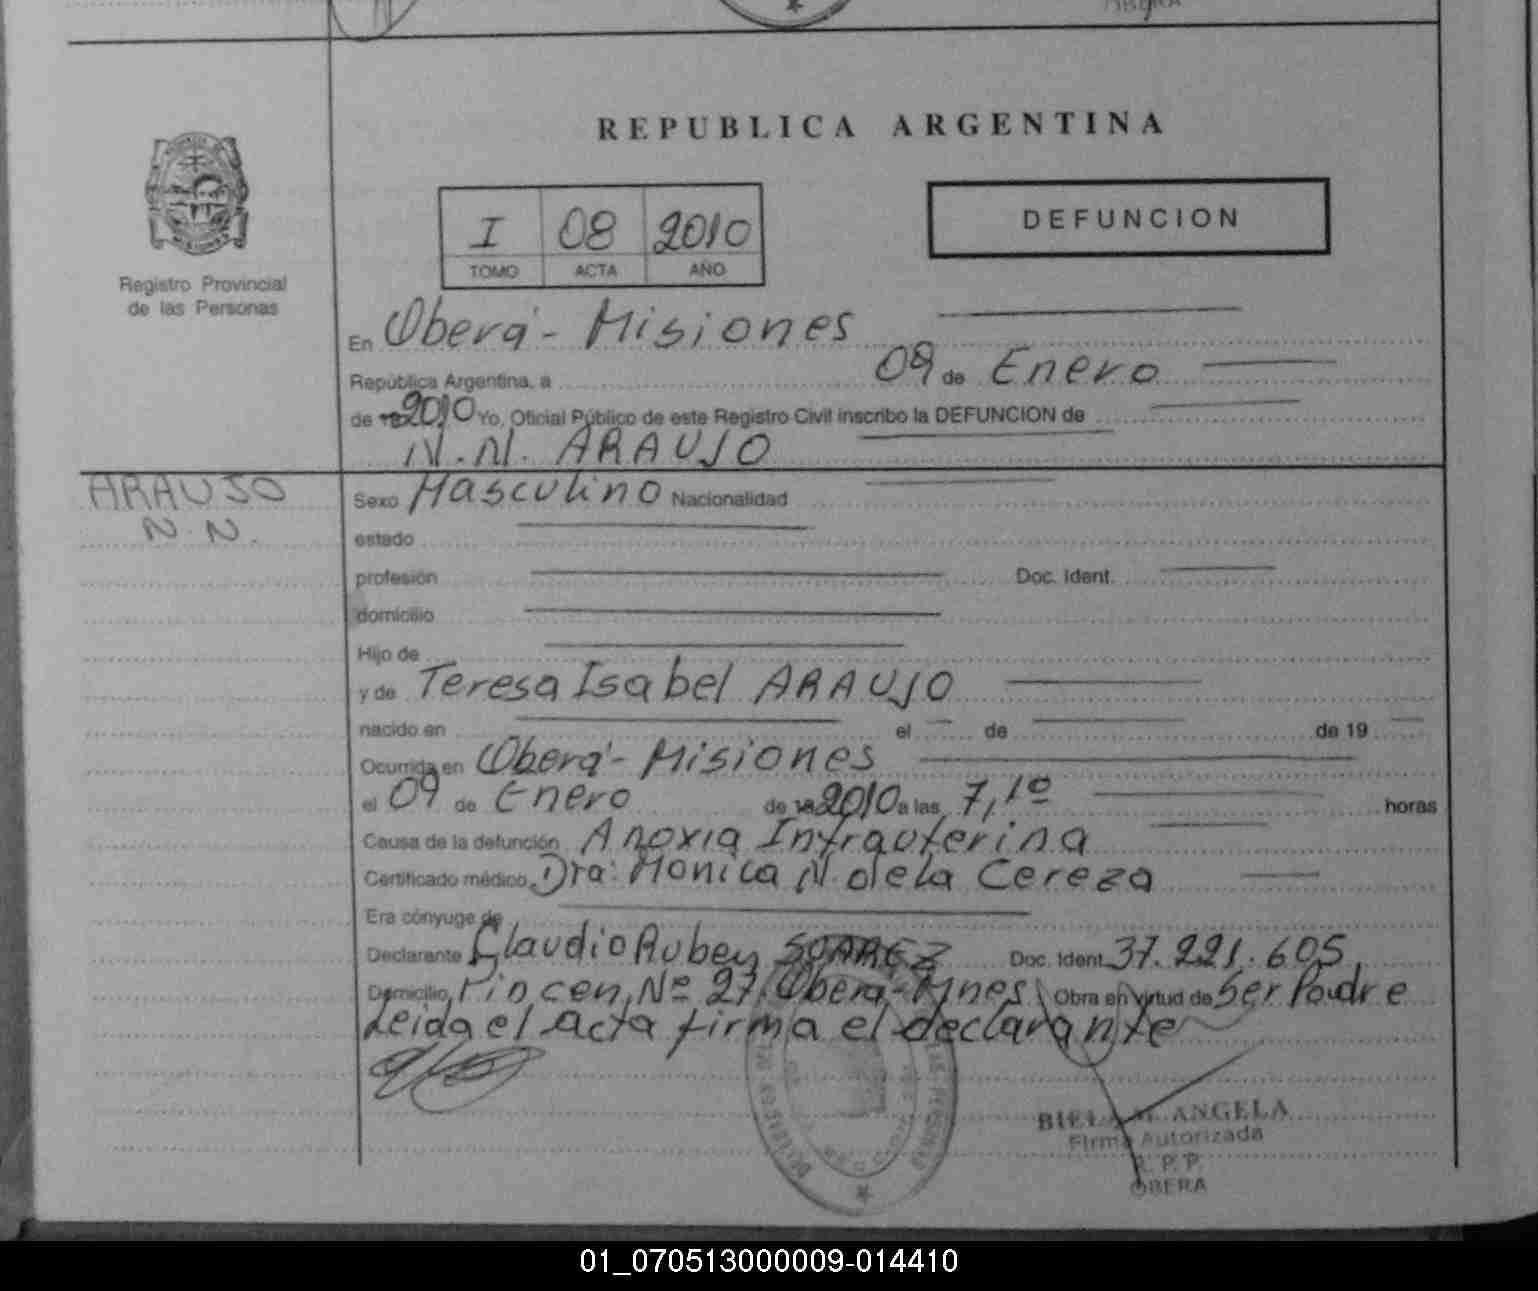 OBERA
REPUBLICA ARGENTINA
I 08 2010
TOMO ACTA AÑO
DEFUNCION
Registro Provincial
de las Personas
En Oberá - Misiones
República Argentina, a 09 de Enero
de 19 2010 Yo, Oficial Público de este Registro Civil inscribo la DEFUNCION de
N.N. ARAUJO
ARAUJO
N.N.
Sexo Masculino Nacionalidad
estado
profesión Doc. Ident.
domicilio
Hijo de
y de Teresa Isabel ARAUJO
nacido en el de de 19
Ocurrida en Oberá - Misiones
el 09 de Enero de 19 2010 a las 7,10 horas
Causa de la defunción Anoxia Intrauterina
Certificado médico Dra: Monica N. de la Cereza
Era cónyuge de
Declarante Claudio Ruben SUAREZ Doc. Ident. 37.221.605
Domicilio, Nº 27, Oberá - Mnes Obra en virtud de Ser Padre
Leida el Acta firma el declarante
M. ANGELA
Firma Autorizada
R. P. P.
OBERA
01_070513000009-014410